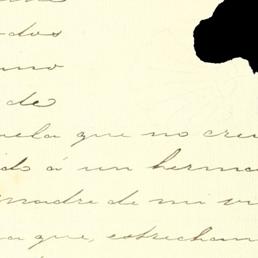 dos
mo
de
uela que no creu
do á un herma
madre de mi vi
a que, estrecham